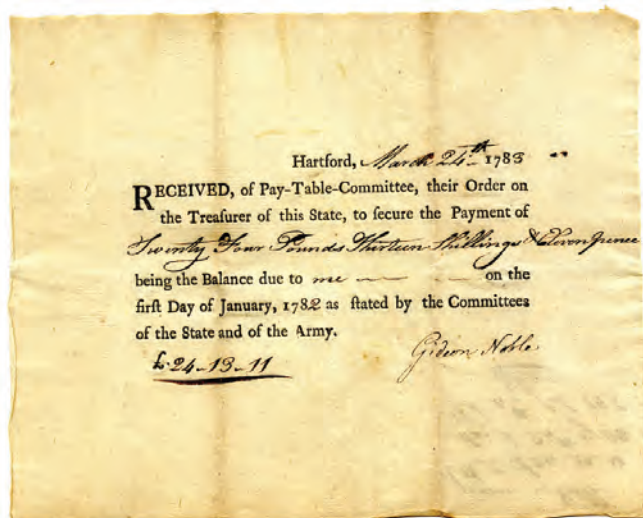 Hartford, March 24th 1783
RECEIVED, of Pay-Table-Committee, their Order on
the Treasurer of this State, to ſecure the Payment of
Twenty Four Pounds Thirteen Shillings & Eleven pence
being the Balance due to me on the
firſt Day of January, 1782 as ſtated by the Committees
of the State and of the Army.
£24-13-11
Gideon Noble